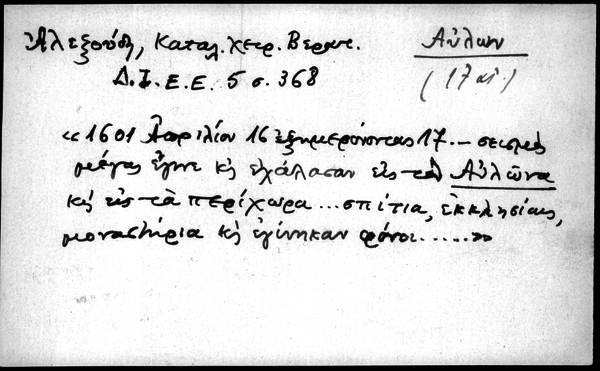 Ἀλεξούδη, Καταλ. χειρ. Βερατ. Αὐλών
Δ.Ι.Ε.Ε. 5 σ. 368 (17 αἰ.)
«1601 Ἀπριλίου 16 ἐξημερώνοντας 17... σεισμὸς
μέγας ἔγινε κ̀ ἐχάλασαν εἰς τὸν Αὐλῶνα
κ̀ εἰς τὰ περίχωρα... σπίτια, ἐκκλησίαις,
μοναστήρια κ̀ ἐγίνηκαν φόνοι.....»